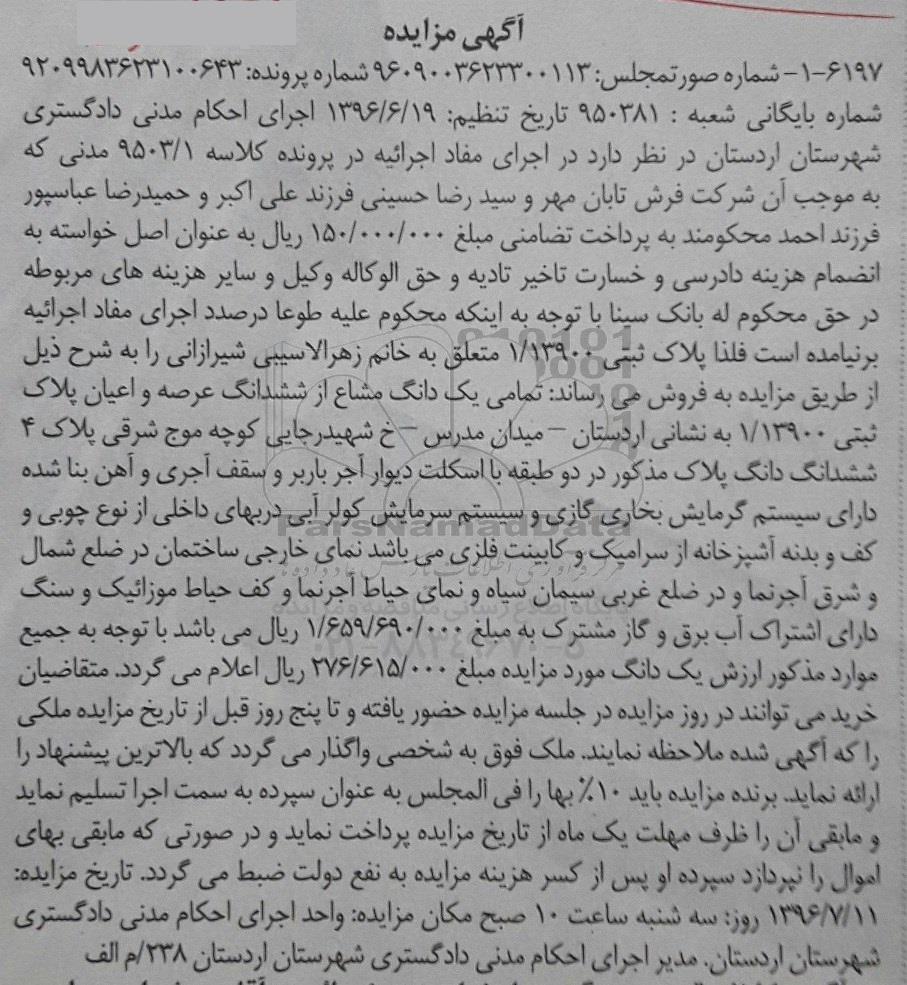 آگهی مزایده
۶۱۹۷-۱- شماره صورتمجلس: ۹۶۰۹۰۰۳۶۲۳۳۰۰۱۱۳ شماره پرونده: ۹۲۰۹۹۸۳۶۲۳۱۰۰۶۴۳
شماره بایگانی شعبه : ۹۵۰۳۸۱ تاریخ تنظیم: ۱۳۹۶/۶/۱۹ اجرای احکام مدنی دادگستری
شهرستان اردستان در نظر دارد در اجرای مفاد اجرائیه در پرونده کلاسه ۹۵۰۳/۱ مدنی که
به موجب آن شرکت فرش تابان مهر و سید رضا حسینی فرزند علی اکبر و حمیدرضا عباسپور
فرزند احمد محکومند به پرداخت تضامنی مبلغ ۱۵۰/۰۰۰/۰۰۰ ریال به عنوان اصل خواسته به
انضمام هزینه دادرسی و خسارت تاخیر تادیه و حق الوکاله وکیل و سایر هزینه های مربوطه
در حق محکوم له بانک سینا با توجه به اینکه محکوم علیه طوعا درصدد اجرای مفاد اجرائیه
برنیامده است فلذا پلاک ثبتی ۱/۱۳۹۰۰ متعلق به خانم زهرالاسیبی شیرازانی را به شرح ذیل
از طریق مزایده به فروش می رساند: تمامی یک دانگ مشاع از ششدانگ عرصه و اعیان پلاک
ثبتی ۱/۱۳۹۰۰ به نشانی اردستان – میدان مدرس – خ شهیدرجایی کوچه موج شرقی پلاک ۴
ششدانگ دانگ پلاک مذکور در دو طبقه با اسکلت دیوار آجر باربر و سقف آجری و آهن بنا شده
دارای سیستم گرمایش بخاری گازی و سیستم سرمایش کولر آبی دربهای داخلی از نوع چوبی و
کف و بدنه آشپزخانه از سرامیک و کابینت فلزی می باشد نمای خارجی ساختمان در ضلع شمال
و شرق آجرنما و در ضلع غربی سیمان سیاه و نمای حیاط آجرنما و کف حیاط موزائیک و سنگ
دارای اشتراک آب برق و گاز مشترک به مبلغ ۱/۶۵۹/۶۹۰/۰۰۰ ریال می باشد با توجه به جمیع
موارد مذکور ارزش یک دانگ مورد مزایده مبلغ ۲۷۶/۶۱۵/۰۰۰ ریال اعلام می گردد. متقاضیان
خرید می توانند در روز مزایده در جلسه مزایده حضور یافته و تا پنج روز قبل از تاریخ مزایده ملکی
را که آگهی شده ملاحظه نمایند. ملک فوق به شخصی واگذار می گردد که بالاترین پیشنهاد را
ارائه نماید. برنده مزایده باید ۱۰٪ بها را فی المجلس به عنوان سپرده به سمت اجرا تسلیم نماید
و مابقی آن را ظرف مهلت یک ماه از تاریخ مزایده پرداخت نماید و در صورتی که مابقی بهای
اموال را نپردازد سپرده او پس از کسر هزینه مزایده به نفع دولت ضبط می گردد. تاریخ مزایده:
۱۳۹۶/۷/۱۱ روز: سه شنبه ساعت ۱۰ صبح مکان مزایده: واحد اجرای احکام مدنی دادگستری
شهرستان اردستان. مدیر اجرای احکام مدنی دادگستری شهرستان اردستان ۲۳۸/م الف
ParsNamadData